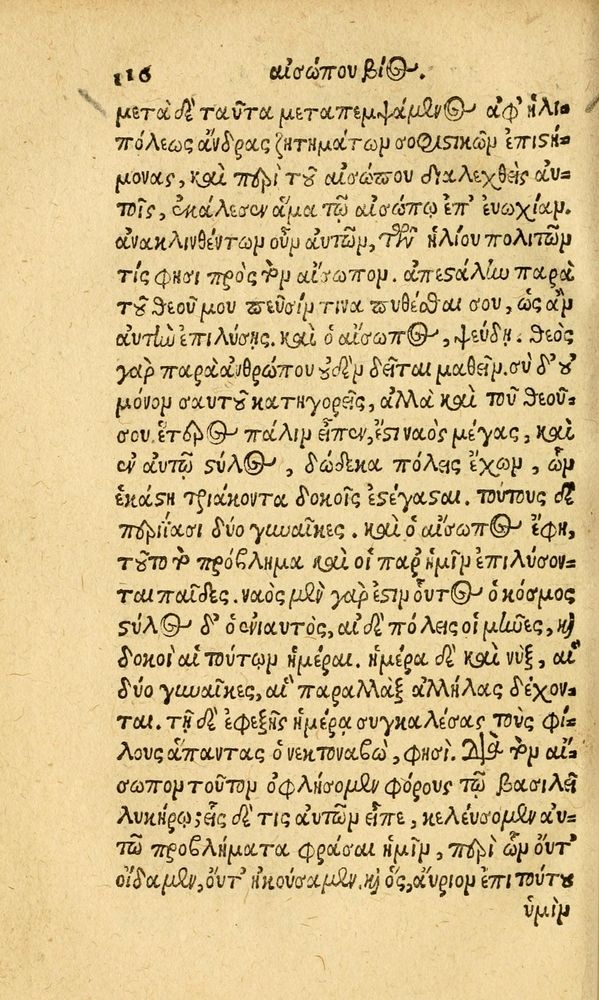 116 αἰσώπου βίος.
μετὰ δὲ ταῦτα μεταπεμψάμενος ἀφ' ἡλι-
πόλεως ἄνδρας ζητημάτων σοφιστικῶν ἐπιστή-
μονας, καὶ περὶ τοῦ αἰσώπου διαλεχθεὶς αὐ-
τοῖς, ἐκάλεσεν ἅμα τῷ αἰσώπῳ ἐπ' ἐυωχίαν.
ἀνακλινθέντων οὖν αὐτῶν, τῶν ἡλίου πολιτῶν
τίς φησι πρὸς τὸν αἴσωπον. ἀπεστάλην παρὰ
τοῦ θεοῦ μου πεῦσίν τινα πυθέσθαι σου, ὡς ἂν
αὐτὴν ἐπιλύσῃς. καὶ ὁ αἴσωπος, ψεύδῃ. θεὸς
γὰρ παρὰ ἀνθρώπου οὐδὲν δεῖται μαθεῖν. σὺ δ' οὐ
μόνον σαυτοῦ κατηγορεῖς, ἀλλὰ καὶ τοῦ θεοῦ-
σου. ἕτερος πάλιν εἶπεν, ἔστι ναὸς μέγας, καὶ
ἐν αὐτῷ στύλος, δώδεκα πόλεις ἔχων, ὧν
ἑκάστη τριάκοντα δοκοῖς ἐστέγασται. τούτους δὲ
περιΐασι δύο γυναῖκες. καὶ ὁ αἴσωπος ἔφη,
τοῦτο τὸ πρόβλημα καὶ οἱ παρ' ἡμῖν ἐπιλύσον-
ται παῖδες. ναὸς μὲν γάρ ἐστιν οὗτος ὁ κόσμος
στύλος δ' ὁ ἐνιαυτὸς, αἱ δὲ πόλεις οἱ μῆνες, καὶ
δοκοὶ αἱ τούτων ἡμέραι. ἡμέρα δὲ καὶ νὺξ, αἱ
δύο γυναῖκες, αἳ παραλλὰξ ἀλλήλας δέχον-
ται. τῇ δὲ ἐφεξῆς ἡμέρᾳ συγκαλέσας τοὺς φί-
λους ἅπαντας ὁ νεκτοναβὼ, φησί. Διὰ τὸν αἴ-
σωπον τοῦτον ὀφλήσομεν φόρους τῷ βασιλεῖ
λυκήρῳ; εἷς δέ τις αὐτῶν εἶπε, κελεύσομεν αὐ-
τῷ προβλήματα φράσαι ἡμῖν, περὶ ὧν οὔτ'
οἴδαμεν, οὔτ' ἠκούσαμεν. καὶ ὃς, ἄυριον ἐπὶ τούτου
ὑμῖν